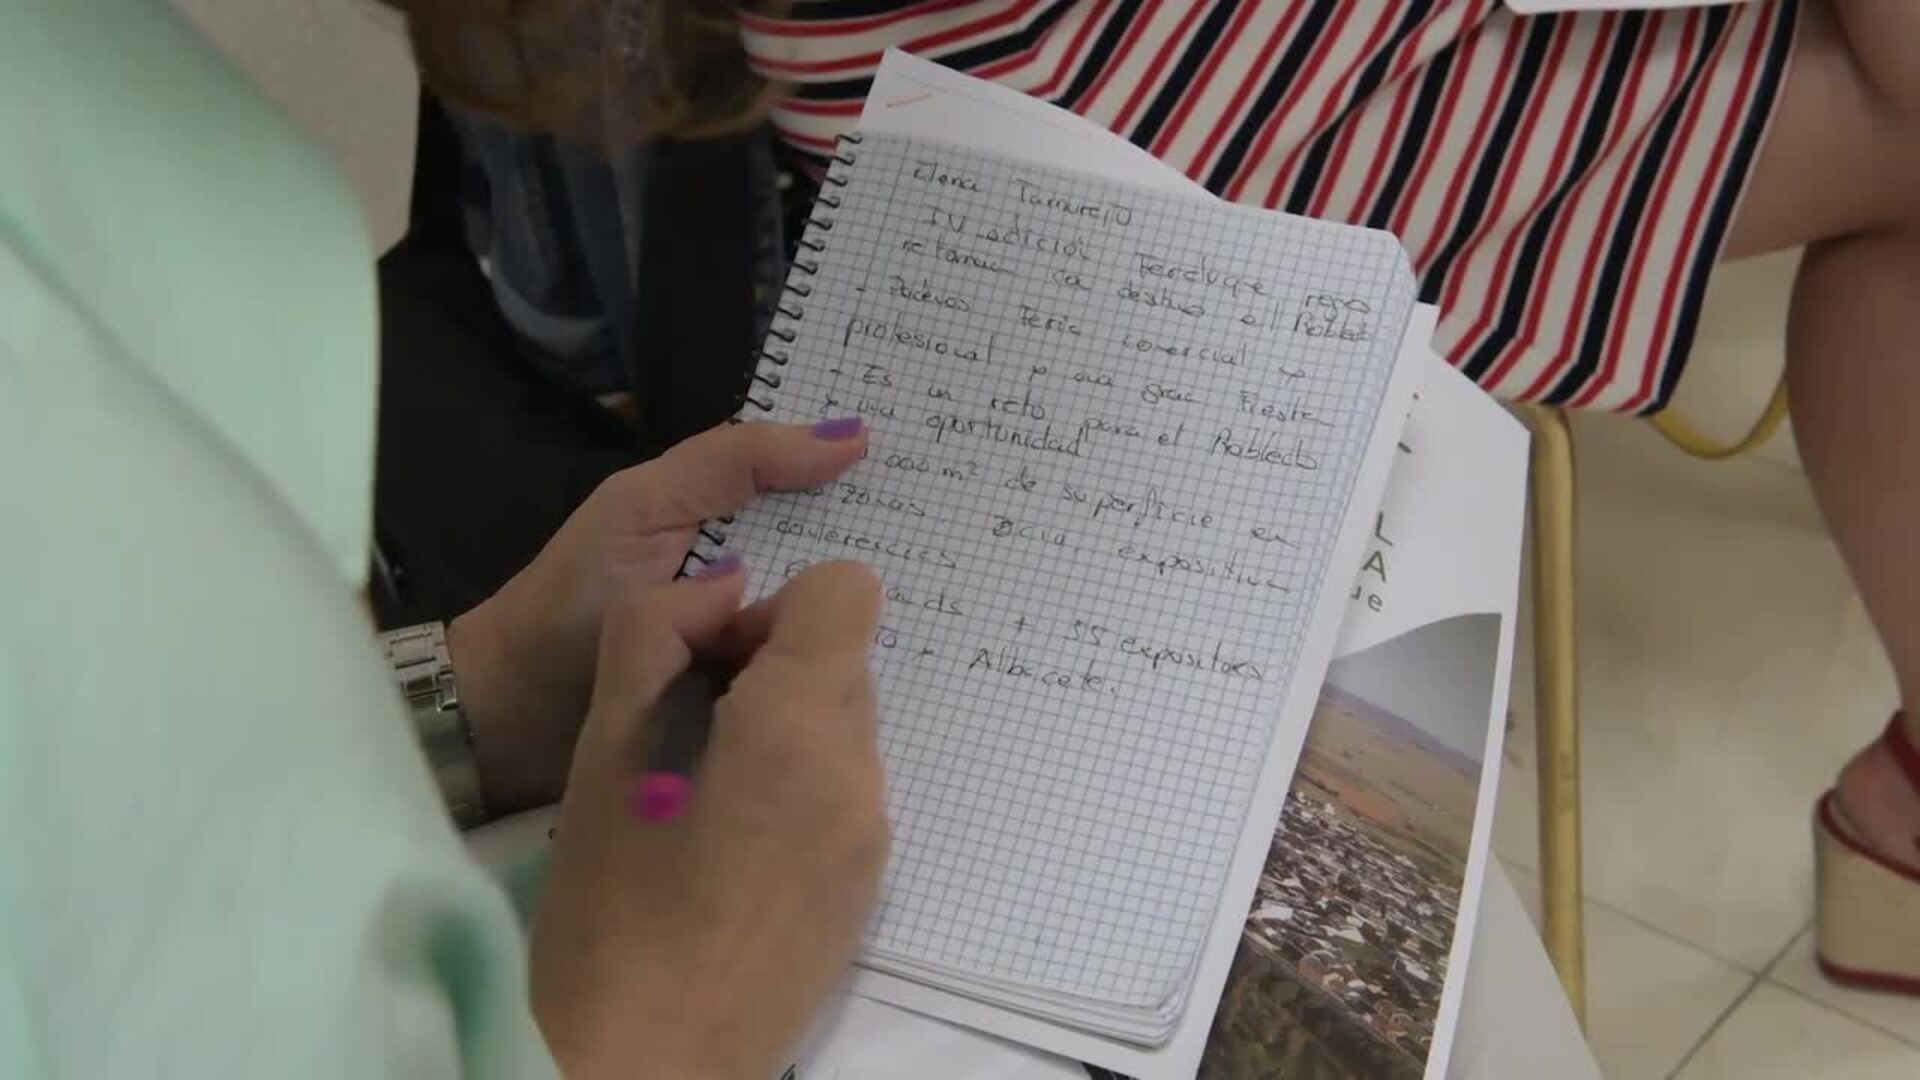 Elena Tamurejo
IV edición Ferduque
retornan destino el Robledo
- Feria comercial y
profesional y una gran Fiesta
- Es un reto para el Robledo
y una oportunidad
000 m² de superficie en
zonas. expositiva
conferencias
ands + 55 expositores
y Albacete.
L
A
ue